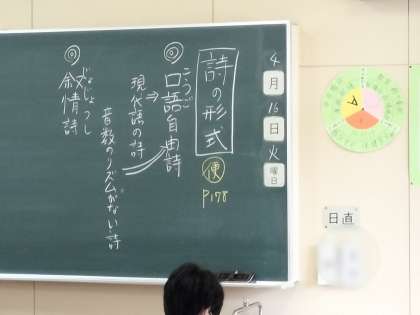 4月16日火曜日
詩の形式
便 P178
◎口語自由詩
こうご
⇒現代語の詩
音数のリズムがない詩
◎叙情詩
じょじょうし
日直